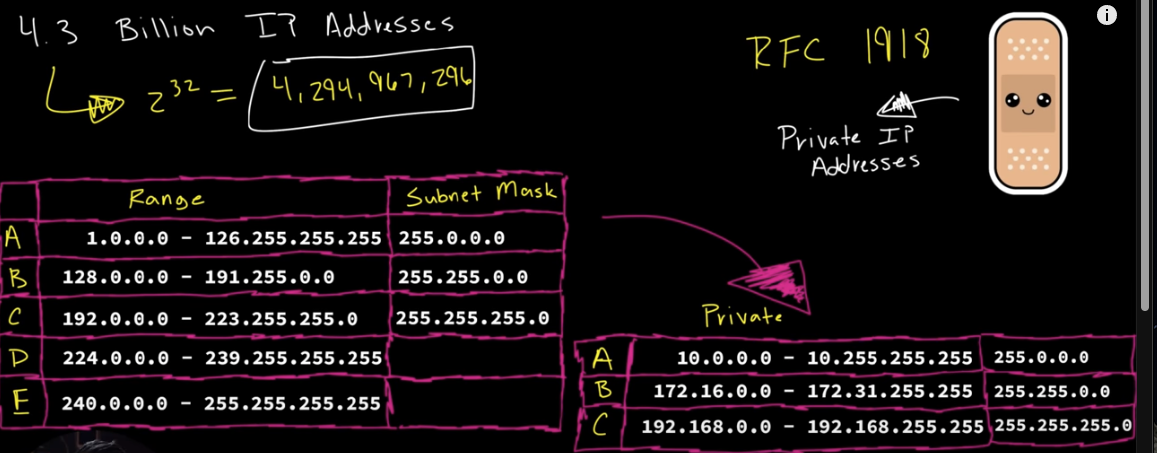 4.3 Billion IP Addresses
2^32 = 4,294,967,296
RFC 1918
Private IP
Addresses
Range Subnet Mask
A 1.0.0.0 - 126.255.255.255 255.0.0.0
B 128.0.0.0 - 191.255.0.0 255.255.0.0
C 192.0.0.0 - 223.255.255.0 255.255.255.0
D 224.0.0.0 - 239.255.255.255
E 240.0.0.0 - 255.255.255.255
Private
A 10.0.0.0 - 10.255.255.255 255.0.0.0
B 172.16.0.0 - 172.31.255.255 255.255.0.0
C 192.168.0.0 - 192.168.255.255 255.255.255.0